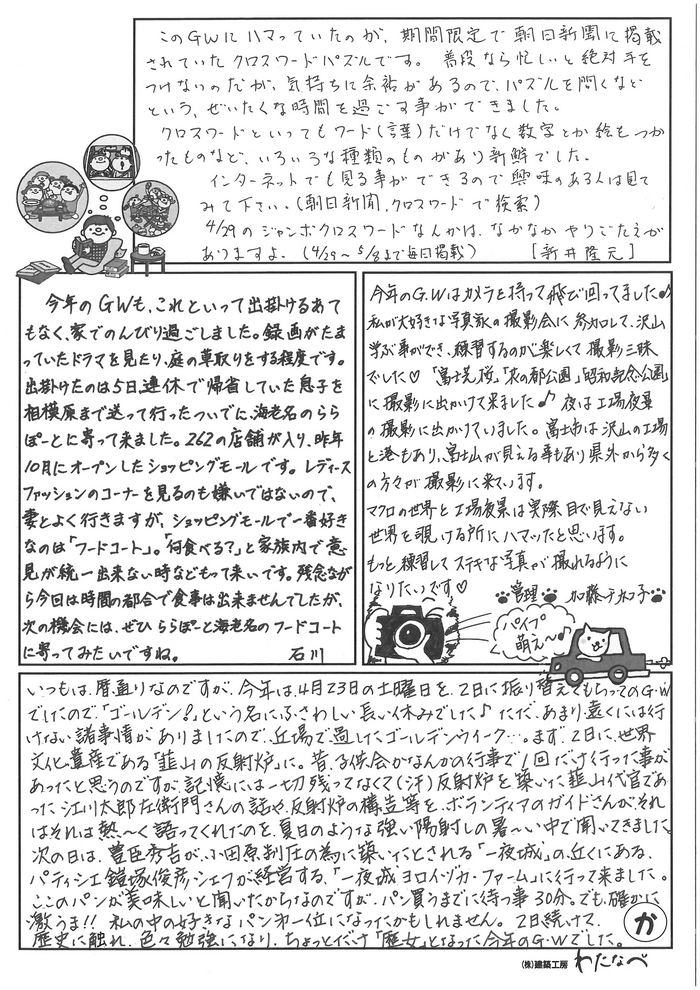 このGWにハマっていたのが、期間限定で朝日新聞に掲載
されていたクロスワードパズルです。普段なら忙しいと絶対手を
つけないのだが、気持ちに余裕があるので、パズルを問くなど
という、ぜいたくな時間を過ごす事ができました。
クロスワードといってもワード(言葉)だけでなく数字とか絵もつか
ったものなど、いろいろな種類のものがあり新鮮でした。
インターネットでも見る事ができるので興味のある人は見て
みて下さい。(朝日新聞、クロスワードで検索)
4/29のジャンボクロスワードなんかは、なかなかやりごたえが
ありますよ。(4/29~5/8まで毎日掲載) [新井隆元]
今年のGWも、これといって出掛けるあて
もなく、家でのんびり過ごしました。録画がたま
っていたドラマを見たり、庭の草取りをする程度です。
出掛けたのは5日、連休で帰省していた息子を
相模原まで送って行ったついでに、海老名のらら
ぽーとに寄って来ました。262の店舗が入り、昨年
10月にオープンしたショッピングモールです。レディース
ファッションのコーナーを見るのも嫌いではないので、
妻とよく行きますが、ショッピングモールで一番好き
なのは「フードコート」。「何食べる?」と家族内で意
見が統一出来ない時などもって来いです。残念なが
ら今回は時間の都合で食事は出来ませんでしたが、
次の機会には、ぜひららぽーと海老名のフードコート
に寄ってみたいですね。 石川
今年のG.Wはカメラを持って飛び回ってました♪
私が大好きな写真家の撮影会に参加して、沢山
学ぶ事ができ、練習するのが楽しくて撮影三昧
でした♡「富士芝桜」「花の都公園」「昭和記念公園」
に撮影に出かけて来ました♪夜は工場夜景
の撮影に出かけていました。富士市は沢山の工場
と港もあり、富士山が見える事もあり県外から多く
の方々が撮影に来ています。
マクロの世界と工場夜景は実際目で見えない
世界を覗ける所にハマったと思います。
もっと練習してステキな写真が撮れるように
なりたいです♡
管理 加藤チカ子
パイプ
萌え~♪
いつもは、暦通りなのですが、今年は、4月23日の土曜日を、2日に振り替えてもらってのG・W
でしたので「ゴールデン!」という名にふさわしい長い休みでした♪ただ、あまり遠くには行
けない諸事情がありましたので、近場で過したゴールデンウィーク…。まず、2日に、世界
文化遺産である「韮山の反射炉」に。昔、子供会かなんかの行事で1回だけ行った事が
あったと思うのですが、記憶には一切残ってなくて(汗)反射炉を築いた韮山代官であ
った江川太郎左衛門さんの話や、反射炉の構造等を、ボランティアのガイドさんが、それ
はそれは熱~く語ってくれたのを、夏日のような強い陽射しの暑~い中で聞いてきました。
次の日は、豊臣秀吉が、小田原制圧の為に築いたとされる「一夜城」の近くにある、
パティシエ鎧塚俊彦シェフが経営する、「一夜城ヨロイヅカ・ファーム」に行って来ました。
ここのパンが美味しいと聞いたからなのですが、パン買うまでに待つ事30分。でも、確かに
激うま!!私の中の好きなパン第一位になったかもしれません。2日続けて、
歴史に触れ、色々勉強になり、ちょっとだけ「歴女」となった今年のG・Wでした。
か
(株)建築工房 わたなべ